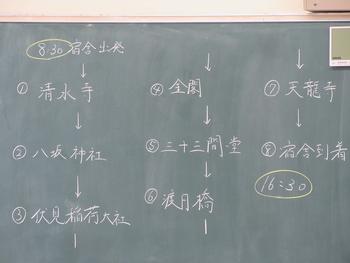 8:30 宿舎出発
↓
① 清水寺
↓
② 八坂神社
↓
③ 伏見稲荷大社
↓
④ 金閣
↓
⑤ 三十三間堂
↓
⑥ 渡月橋
↓
⑦ 天龍寺
↓
⑧ 宿舎到着
16:30